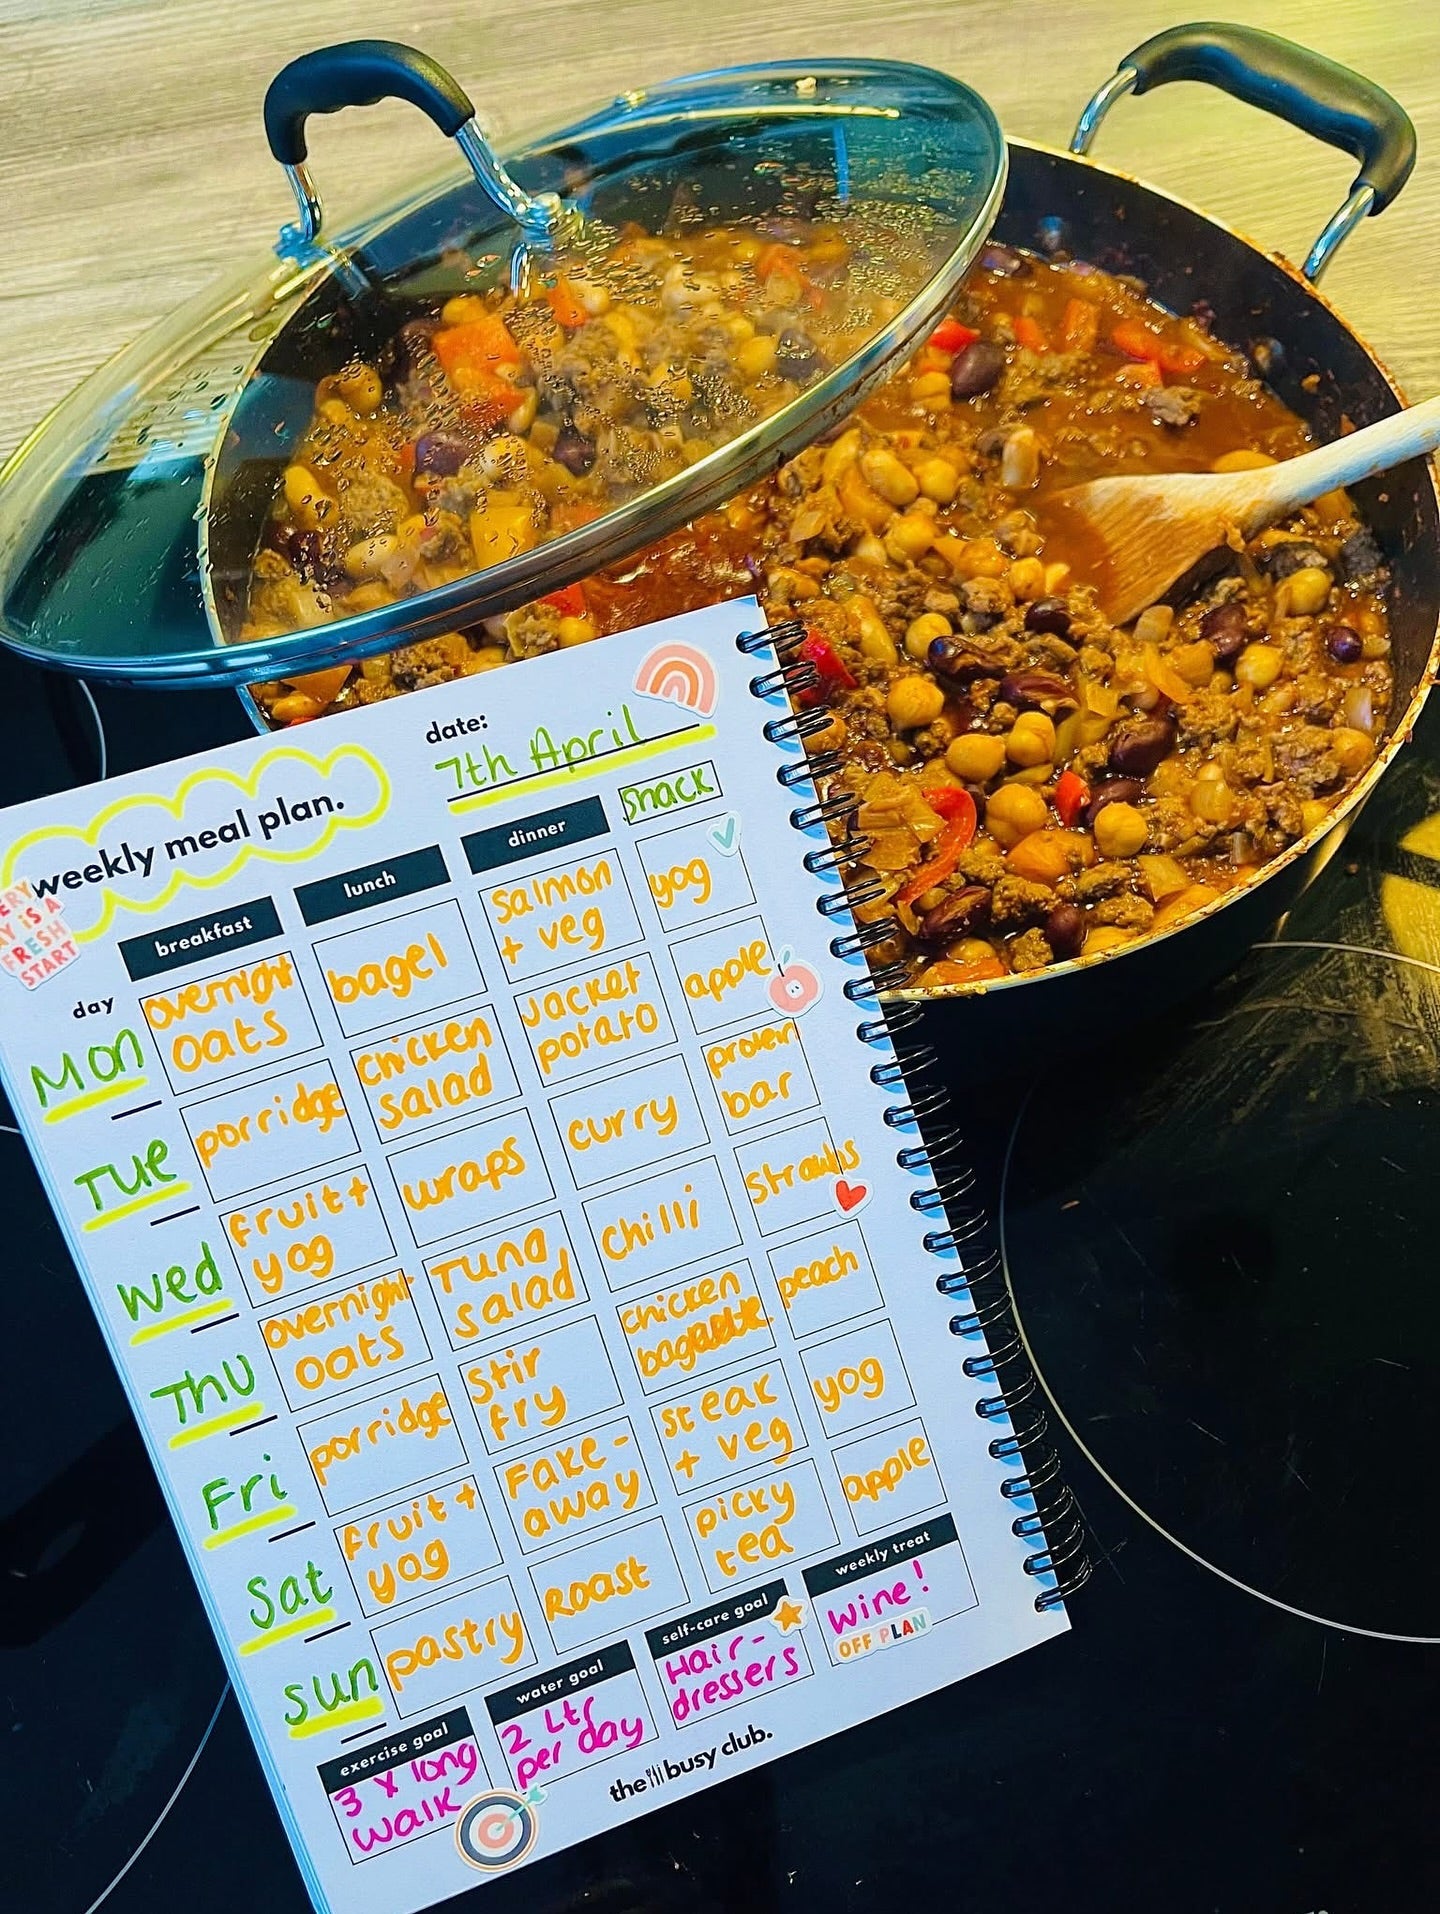 date:
7th April
weekly meal plan.
EVERY
DAY iS A
FRESH
START
day
breakfast
lunch
dinner
snack
Mon
overnight
oats
bagel
salmon
+ veg
yog
Tue
porridge
chicken
salad
Jacket
potato
apple
Wed
fruit +
yog
wraps
curry
protein
bar
Thu
overnight
oats
Tuna
salad
Chilli
strawbs
Fri
porridge
stir
fry
chicken
peach
Sat
fruit +
yog
Fake-
away
steak
+ veg
yog
Sun
pastry
Roast
picky
tea
apple
exercise goal
3 x long
walk
water goal
2 Ltr
per day
self-care goal
Hair-
dressers
weekly treat
Wine!
OFF PLAN
the busy club.